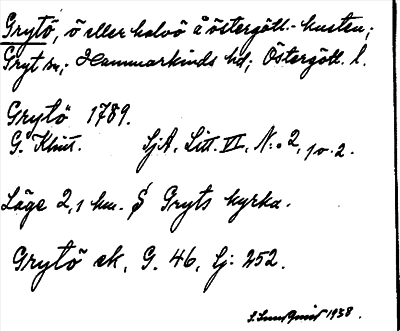 Grytö, ö eller halvö å östergötl.-kusten;
Gryt sn; Hammarkinds hd; Östergötl. l.
Grytö 1789.
G. Klint. SjA, Litt. VI, N:o 2, 1 o. 2.
Läge 2,1 km. S Gryts kyrka.
Grytö ek, G. 46, Sj: 252.
1938.